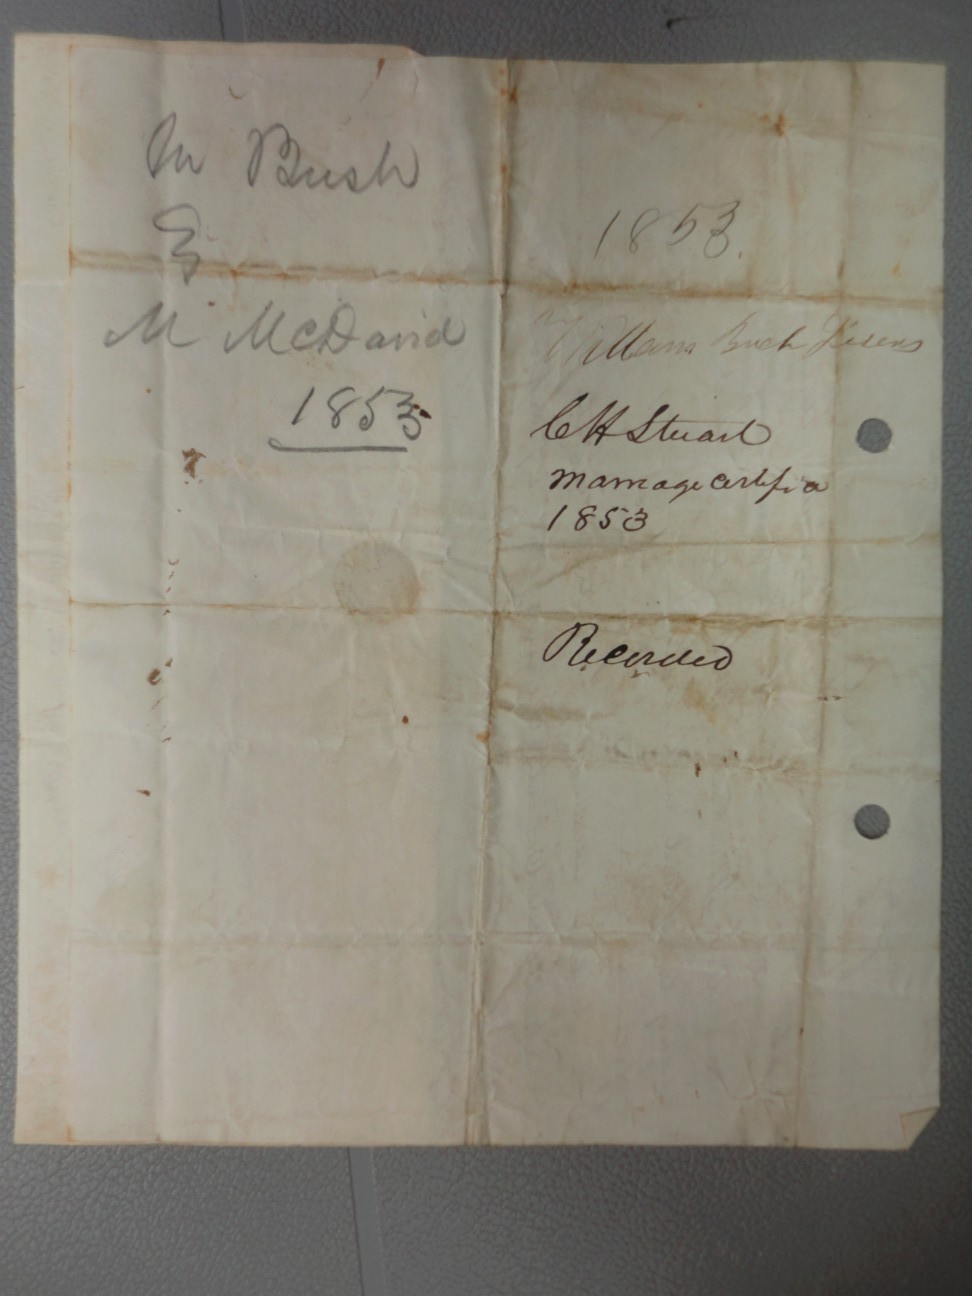 M Bush
&
M McDavid
1853
1853.
William Bush Lisens
C H Stuart
marriage certifica
1853
Recorded